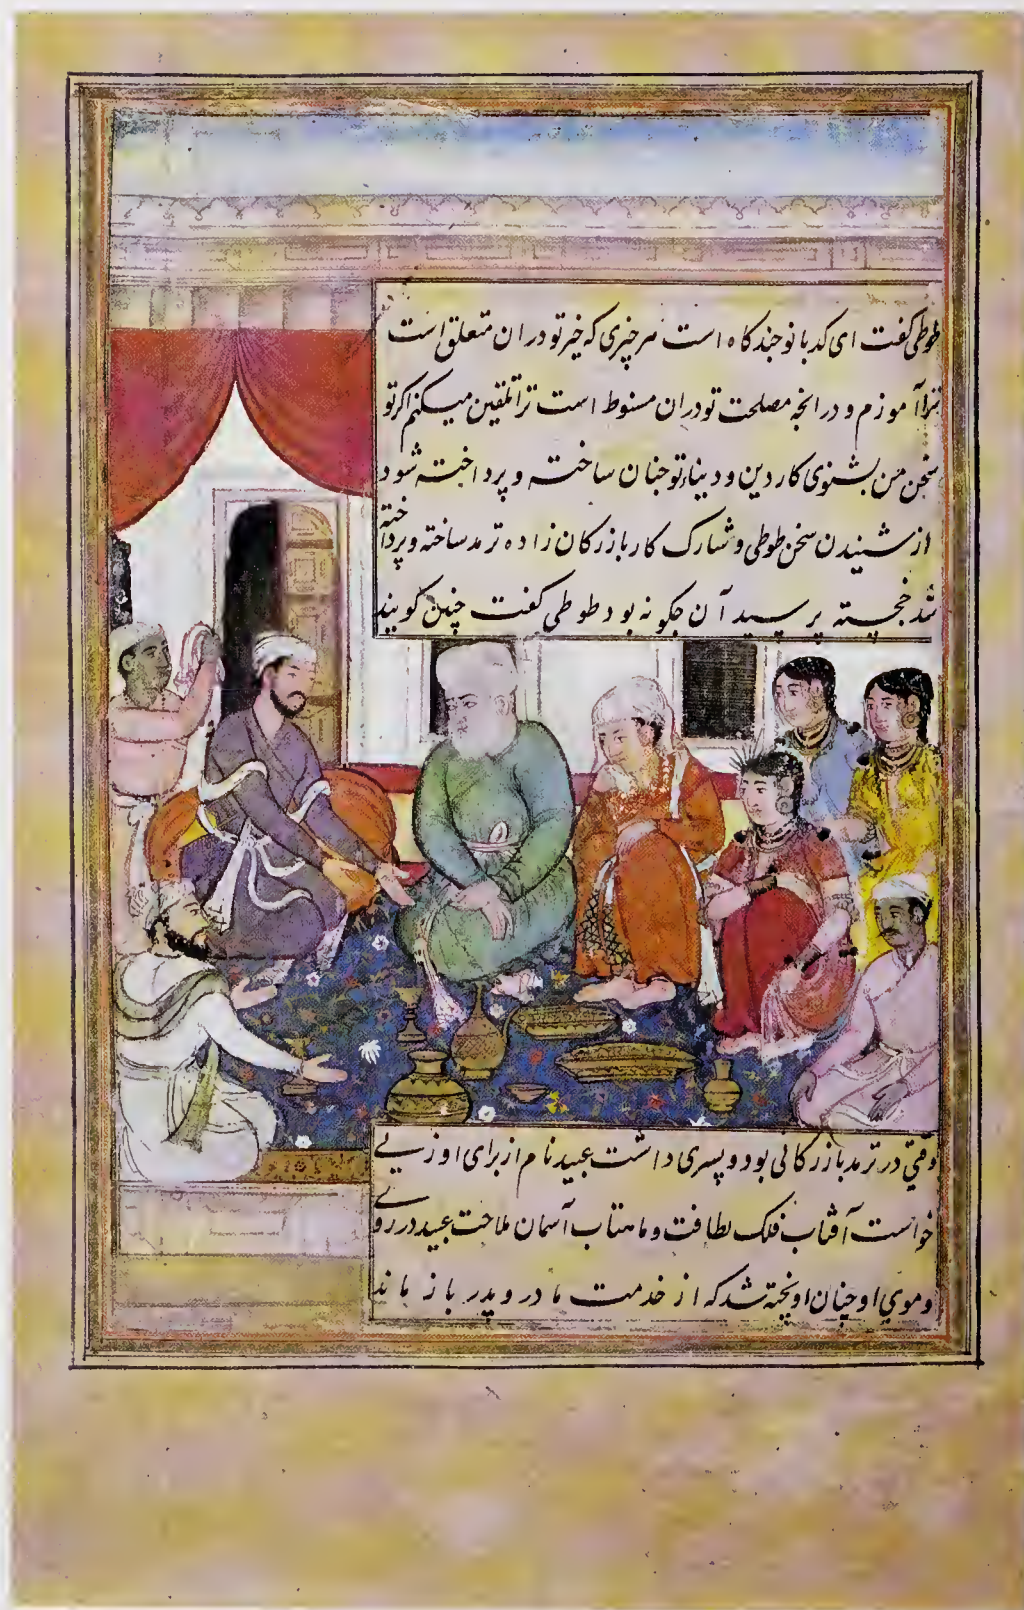 طوطی کفت ای کدبانو چند کاه است هر چیزی که خیر تو در ان متعلق است
ترا آموزم و در انچه مصلحت تو دران منوط است ترا تلقین میکنم اکر تو
سخن من بشنوی کار دین و دنیاء تو چنان ساخته و پرداخته شود
از شنیدن سخن طوطی و شارک کار بازرکان زاده ترمد ساخته و پرداخته
شد خجسته پرسید آن چکونه بود طوطی کفت چنین کویند
وقتی در ترمد بازرکانی بود و پسری داشت عبید نام از برای او زنے
خواست آفتاب فلک لطافت و ماهتاب آسمان ملاحت عبید در روے
و موی او چنان اویخته شد که از خدمت مادر و پدر باز ماند